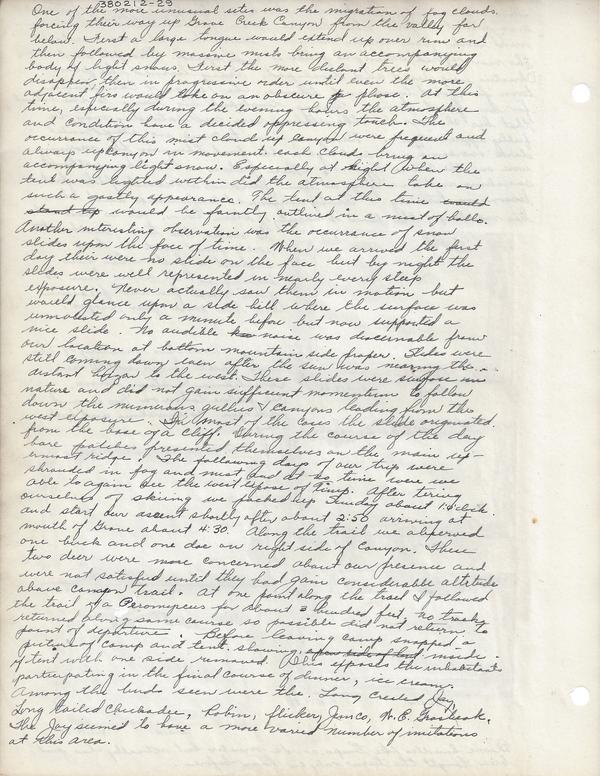 380212-29
One of the more unusual sites was the migration of fog clouds
forcing their way up Grove Creek Canyon from the valley far
below. First a large tongue would extend up over run and
then followed by massive mush bring an accompanying
body of light snows. First the more distant trees would
disappear, then in progressive order until even the more
adjacent firs would take on an obscure phase. At this
time, especially during the evening hours the atmosphere
and condition have a decided oppressing touch. The
occurrance of this mist cloud up canyon were frequent and
always upcanyon in movement. each clouds bring an
accompanying light snow. Especially at night when the
tent was lighted within did the atmosphere take on
such a gostly appearance. The tent at this time would
stand up would be faintly outlined in a mist of hallo.
Another intersting observation was the occurrance of snow
slides upon the face of timp. When we arrived the first
day their were no slide on the face but by night the
slides were well represented in nearly every steep
exposure. Never actually saw them in motion but
would glance upon a side hill where the surface was
unmolested only a minute before but now supported a
nice slide. No audible noise was discernable from
our location at bottom mountain side proper. Slides were
still coming down even after the sun was nearing the
distant horizon to the west. These slides were surface in
nature and did not gain sufficient momentum to follow
down the numerous gullies & canyons leading from the
west exposure. In most of the cases the slide originated
from the base of a cliff. During the course of the day
bare patches presented themselves on the main up-
ermost ridges. The following days of our trip were
shrouded in fog and mist and at no time were we
able to again see the west expose of timp. After tiring
ourselves of skiing we packed up Sunday about 1: o'clock
and start our ascent shortly after about 2:50 arriving at
mouth of Grove about 4:30. Along the trail we observed
one buck and one doe on right side of canyon. These
two deer were more concerned about our presence and
were not satisfied until they had gain considerable altitude
above canyon trail. At one point along the trail I followed
the trail of a Peromyscus for about 3 hundred feet. no tracks
returned along same course so possible did not return to
point of departure. Before leaving camp snapped a
picture of camp and tent. showing open side of tent inside
of tent with one side removed. This exposes the inhabitants
participating in the final course of dinner, ice cream.
Among the birds seen were the Long Crested Jay,
Long tailed Chicadee, Robin, flicker, Junco, W. E. Grosbeak.
The Jay seemed to have a more varied number of imitations
at this area.